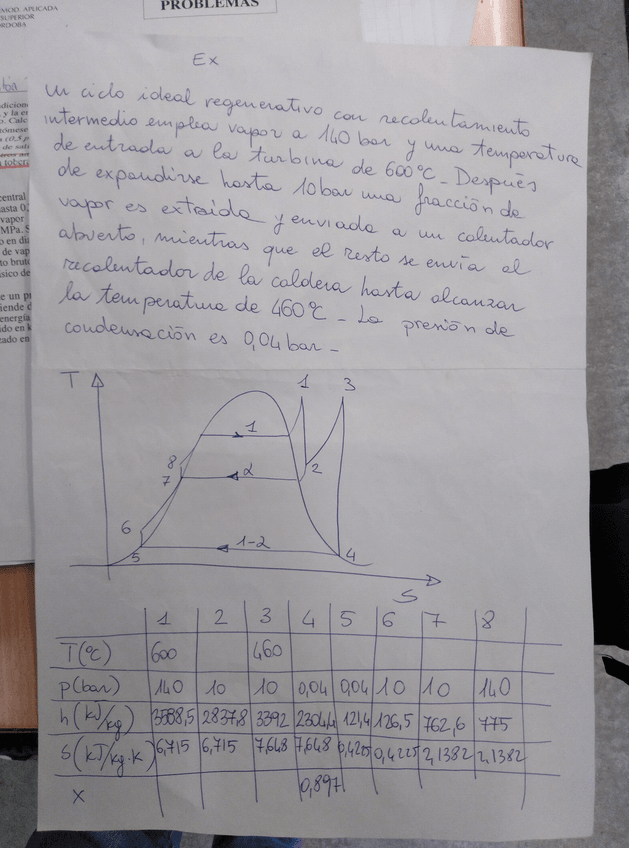 MOD. APLICADA
SUPERIOR
PROBLEMAS
Ex
Un ciclo ideal regenerativo con recalentamiento
intermedio emplea vapor a 140 bar y una temperatura
de entrada a la turbina de 600°C. Después
de expandirse hasta 10bar una fracción de
vapor es extraída y enviada a un calentador
abierto, mientras que el resto se envía al
recalentador de la caldera hasta alcanzar
la temperatura de 460°C. La presión de
condensación es 0,04 bar.
T 1 3
1
8 2 2
7
6
5 1-2 4
S
1 2 3 4 5 6 7 8
T(°C) 600 460
p(bar) 140 10 10 0,04 0,04 10 10 140
h(kJ/kg) 3588,5 2837,8 3392 2304,4 121,4 126,5 762,6 775
s(kJ/kg·K) 6,715 6,715 7,648 7,648 0,4225 0,4225 2,1382 2,1382
x 0,897